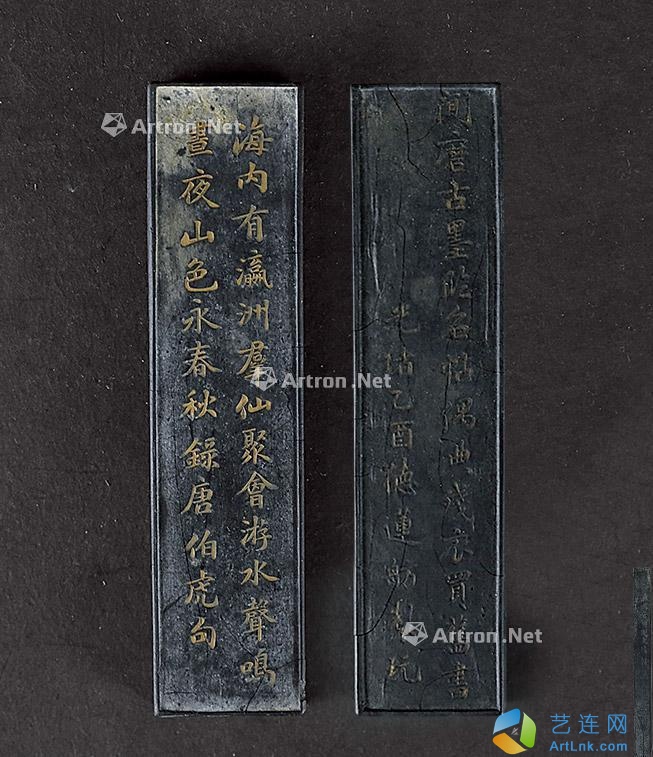 海内有瀛洲群仙聚會游水聲鳴
晝夜山色永春秋錄唐伯虎句
閒磨古墨臨名帖偶典 衣買舊書
光緒乙酉德蓮
Artron.Net
Artron.Net
Artron.Net
艺连网
ArtLnk.com